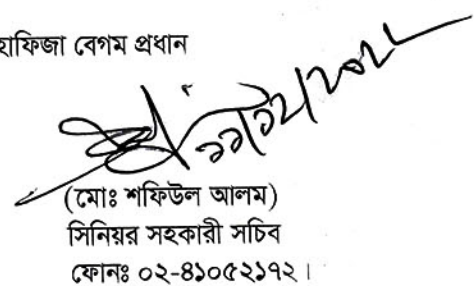 হাফিজা বেগম প্রধান
(মোঃ শফিউল আলম)
সিনিয়র সহকারী সচিব
ফোনঃ ০২-৪১০৫২১৭২।